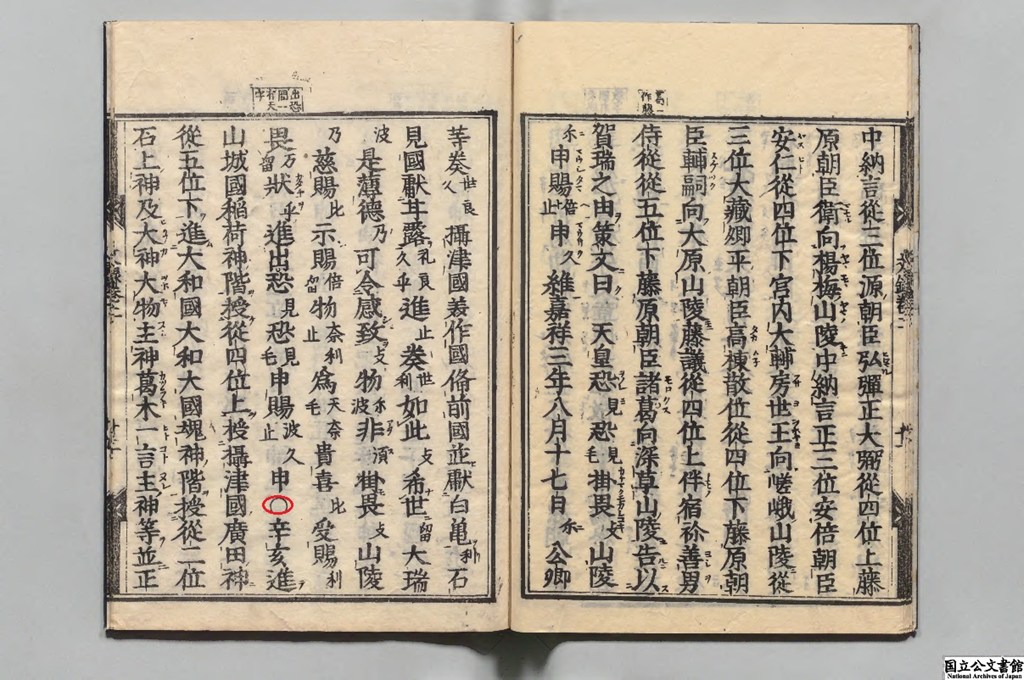 中納言從三位源朝臣弘彈正大弼從四位上藤
原朝臣衛向楊梅山陵中納言正三位安倍朝臣
安仁從四位下宮内大輔房世王向嵯峨山陵從
三位大藏卿平朝臣高棟散位從四位下藤原朝
臣輔嗣向大原山陵藤議從四位上伴宿祢善男
侍從從五位下藤原朝臣諸葛向深草山陵告以
賀瑞之由策文曰天皇恐見恐毛掛畏攴山陵
尓申賜倍止申久維嘉祥三年八月十七日尓公卿
等奏久世良攝津國美作國備前國並獻白亀利石
見國獻甘露礼良久乎進止奏世利如此攴希世留大瑞
波是薶德乃可令感致攴物尓波非須掛畏攴山陵
乃慈賜比示賜倍留物奈利止爲天奈毛貴喜比受賜利
畏万留狀乎進出恐見恐見毛申賜波久止申〇辛亥進
山城國稲荷神階授從四位上授攝津國廣田神
從五位下進大和國大和大國魂神階授從二位
石上神及大神大物主神葛木一言主神等並正
国立公文書館
National Archives of Japan